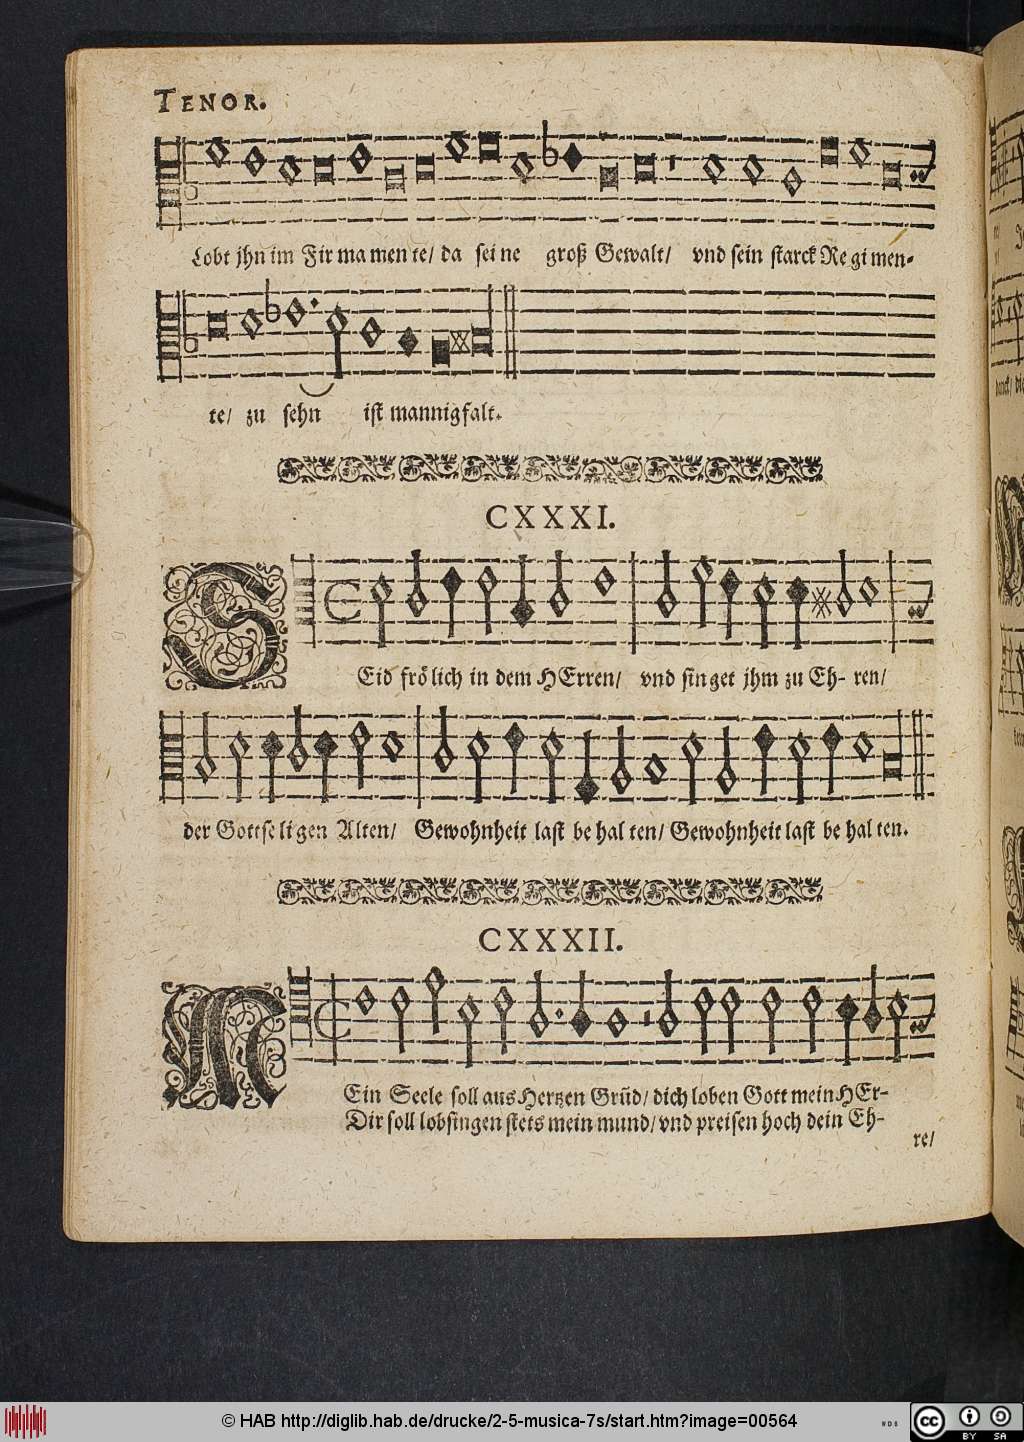 TENOR.
Lobt jhn im Fir ma men te/ da sei ne groß Gewalt/ vnd sein starck Re gi men-
te/ zu sehn ist mannigfalt.
CXXXI.
SEid frölich in dem HErren/ vnd singet jhm zu Eh- ren/
der Gottseligen Alten/ Gewohnheit last be hal ten/ Gewohnheit last be hal ten.
CXXXII.
MEin Seele soll aus Hertzen Grũd/ dich loben Gott mein HEr-
Dir soll lobsingen stets mein mund/ vnd preisen hoch dein Eh-
re/
© HAB http://diglib.hab.de/drucke/2-5-musica-7s/start.htm?image=00564
WDB
cc BY SA